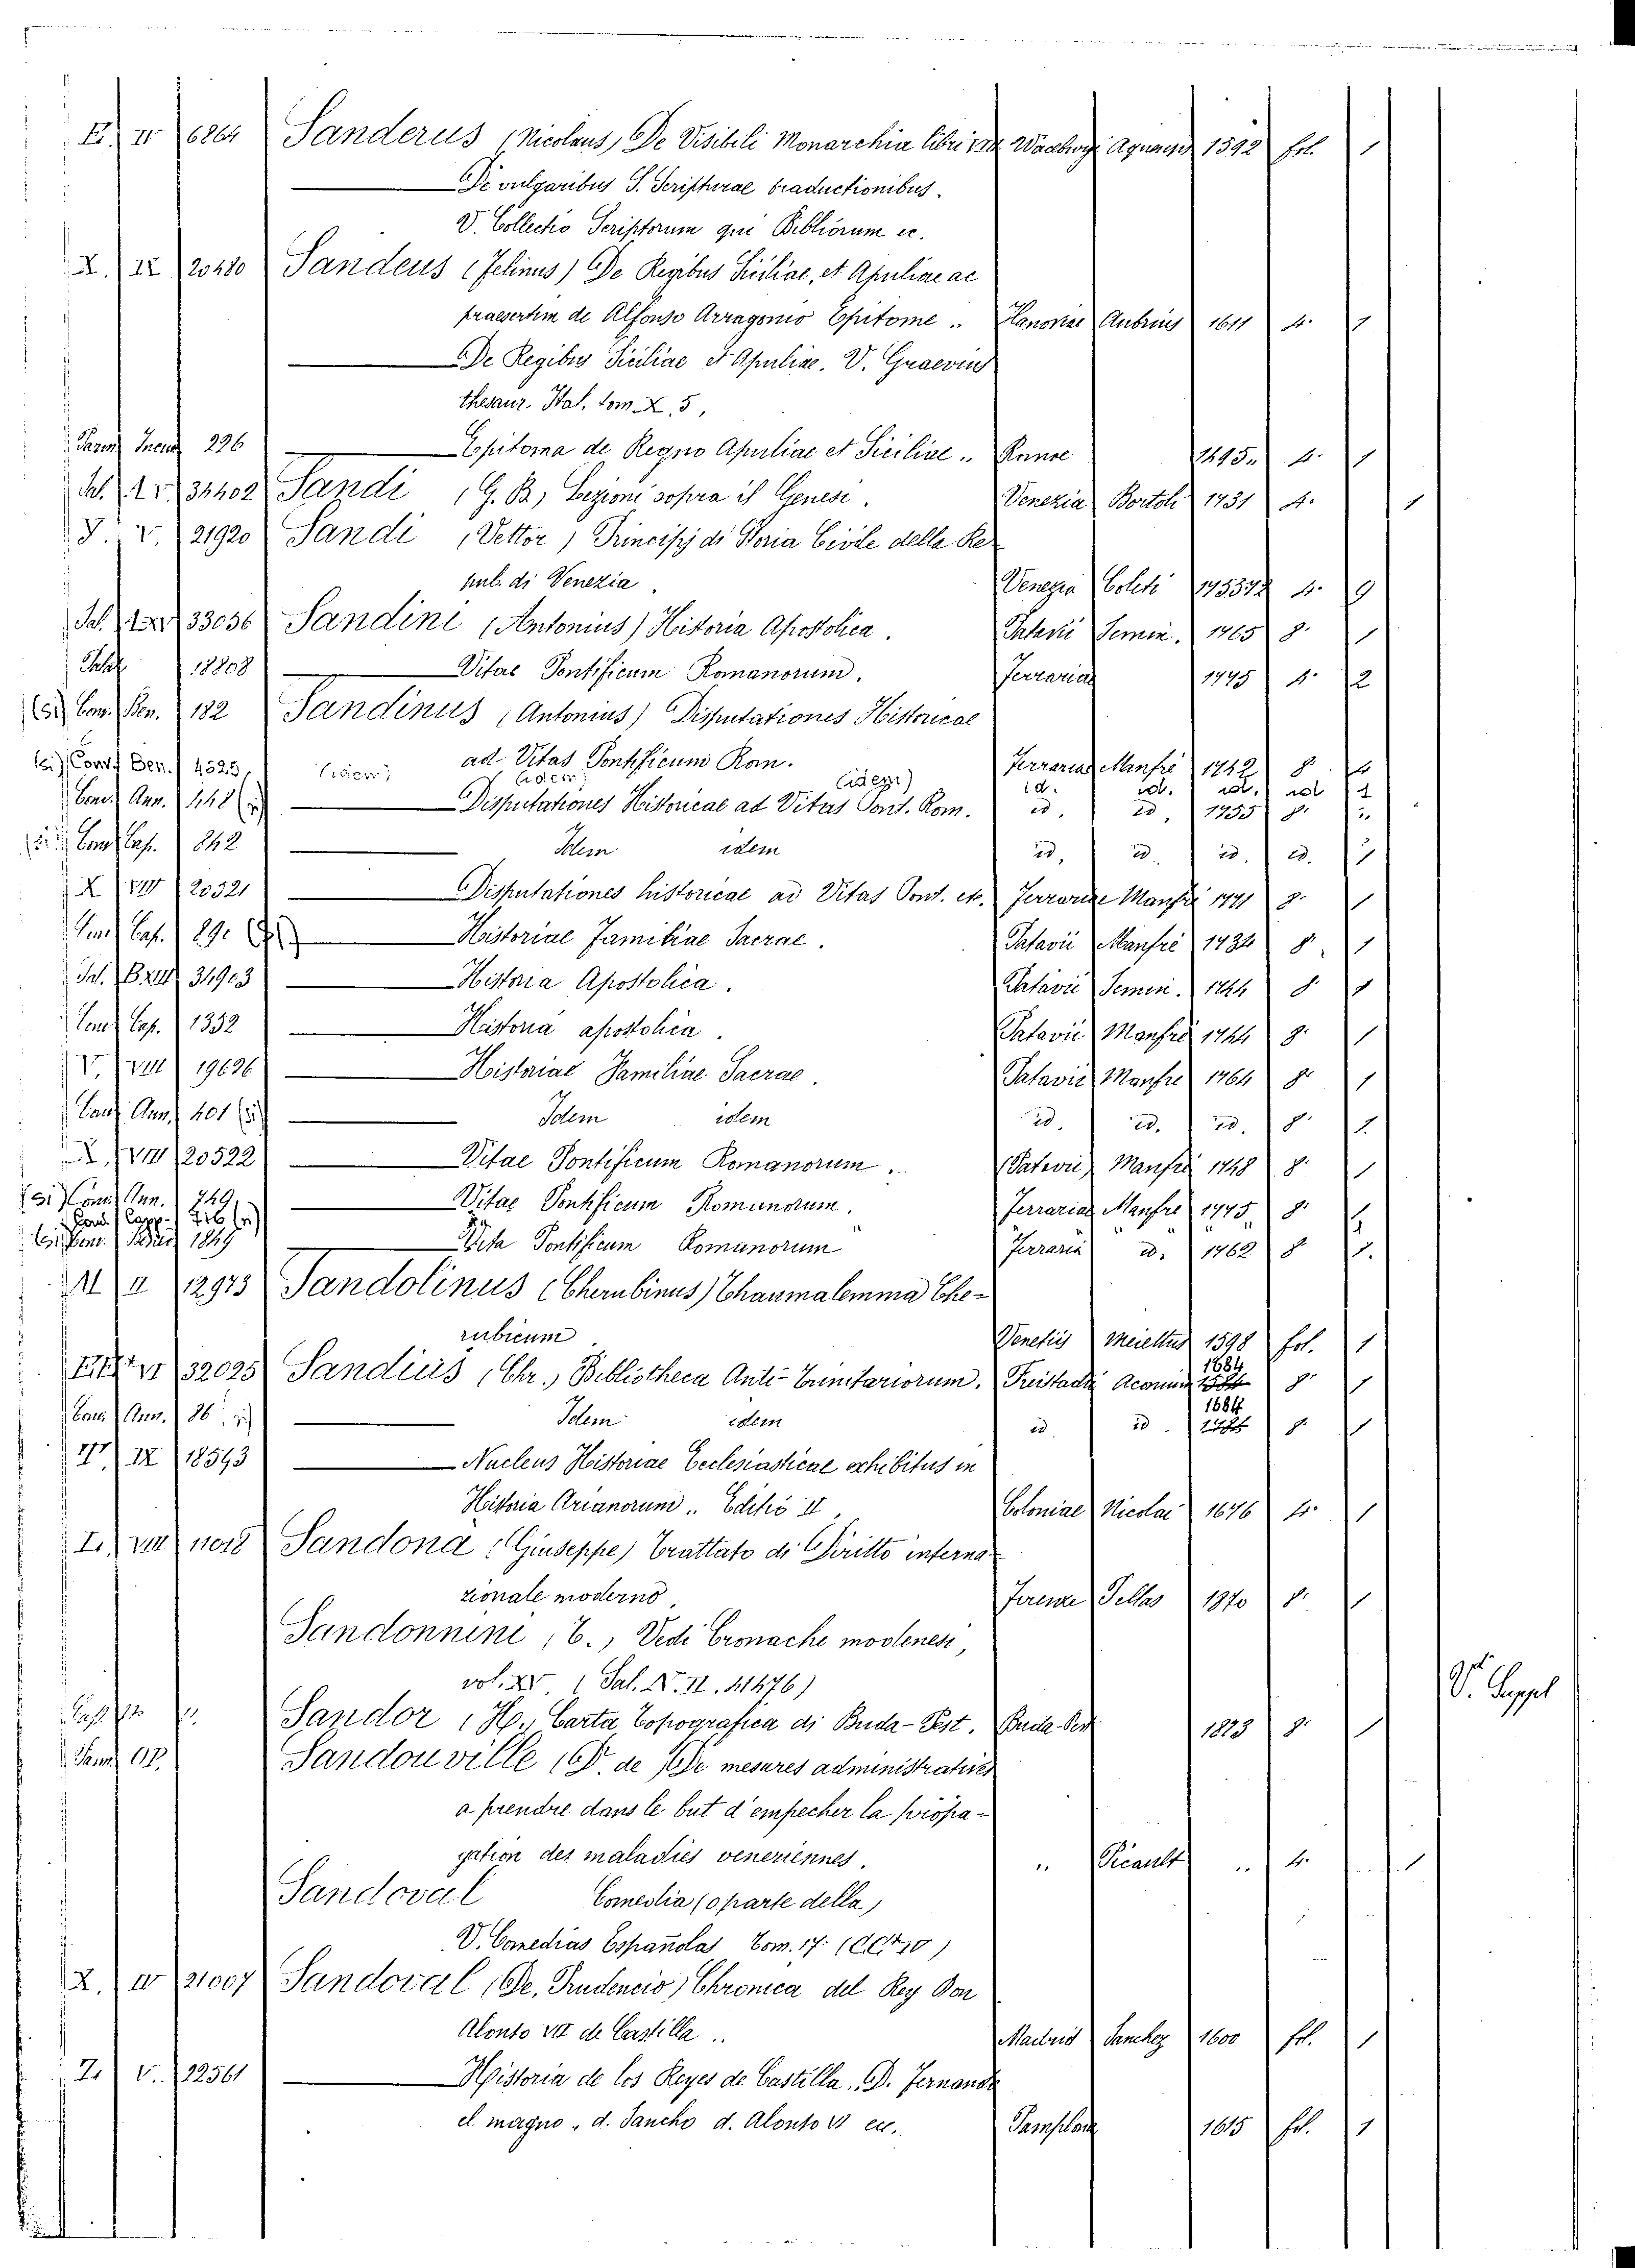 E. II 6864 Sanderus (Nicolaus) De Visibili Monarchia libri Aquensis 1592 fol. 1
De vulgaribus S. Scripturae traductionibus.
V. Collectio Scriptorum qui Bibliorum ec.
X. IX 20480 Sandeus (Felinus) De Regibus Siciliae, et Apuliae ac
praesertim de Alfonso Arragonio Epitome .. Hanoviae Aubrius 1611 4. 1
De Regibus Siciliae et Apuliae. V. Graevius
thesaur. Ital. tom. X. 5,
226 Epitoma de Regno Apuliae et Siciliae .. Romae 1495.. 4. 1
34402 Sandi (G. B.) Lezioni sopra il Genesi. Venezia Bortoli 1731 4. 1
V. 21920 Sandi (Vettor) Principj di Storia Civile della Re-
pub. di Venezia. Venezia Coleti 4. 9
33056 Sandini (Antonius) Historia Apostolica. Patavii Semin. 1765 8. 1
18808 Vitae Pontificum Romanorum. Ferrariae 1775 4. 2
(5i) Con. Ben. 182 Sandinus (Antonius) Disputationes Historicae
ad Vitas Pontificum Rom. Ferrariae Manfrè 1742 8
(si) Conv. Ben. 4525, (idem) (idem) (idem) id. id. id. id 1
Conv. Ann. 448 Disputationes Historicae ad Vitas Pont. Rom. id. id. 1755 8.
Conv. Cap. 842 Idem idem id, id. id. id. 1
X VIII 20521 Disputationes historicae ad Vitas Pont. etc. Ferrariae Manfrè 1741 8. 1
Conv. Cap. 89. Historiae Familiae Sacrae. Patavii Manfrè 1734 8. 1
34903 Historia Apostolica. Patavii Semin. 1744 8 1
Conv. Cap. 1332 Historia apostolica. Patavii Manfrè 1744 8. 1
V. VIII 19626 Historiae Familiae Sacrae. Patavii Manfrè 1764 8. 1
Conv. Ann. 401 Idem idem id. id. id. 8. 1.
X. VIII 20522 Vitae Pontificum Romanorum. Patavii Manfrè 1748 8. 1
Conv. Ann. 749, Vitae Pontificum Romanorum. Ferrariae Manfrè 1775, 8.
Cond. Capp. 716
1849 Vita Pontificum Romanorum Ferraria id. 1762 8 1.
M II 12973 Sandolinus (Cherubinus) Thaumalemma Che-
rubicum Venetiis Meiettus 1598 fol. 1
VI 32025 Sandius (Chr.) Bibliotheca Anti-Trinitariorum. Freistadii Aconium 1684 8. 1
Conv. Ann. 86 Idem idem id id. 1684 8. 1
IX 18593 Nucleus Historiae Ecclesiasticae exhibitus in
Historia Arianorum .. Editio II, Coloniae Nicolai 1676 4. 1
VIII Sandonà (Giuseppe) Trattato di Diritto interna-
zionale moderno. Firenze Pellas 1870 8. 1
Sandonnini (T.) Vedi Cronache modenesi,
vol. XV (Sal. N. II. 41476)
Sandor (H.) Carta Topografica di Buda-Pest. Buda-Pest 1873 8. 1
V. Suppl
Sandouville (D. de) De mesures administratives
a prendre dans le but d'empecher la propa-
gation des maladies veneriennes. ,, Picault .. 4. 1
Sandoval Comedia (o parte della)
V. Comedias Españolas Tom. 17.
X. IV 21007 Sandoval (De, Prudencio) Chronica del Rey Don
Alonso VII de Castilla .. Madrid Sanchez 1600 fol. 1
Z. V. 22561 Historia de los Reyes de Castilla .. D. Fernando
el magno, d. Sancho d. Alonso VI ec. Pamplona 1615 fol. 1